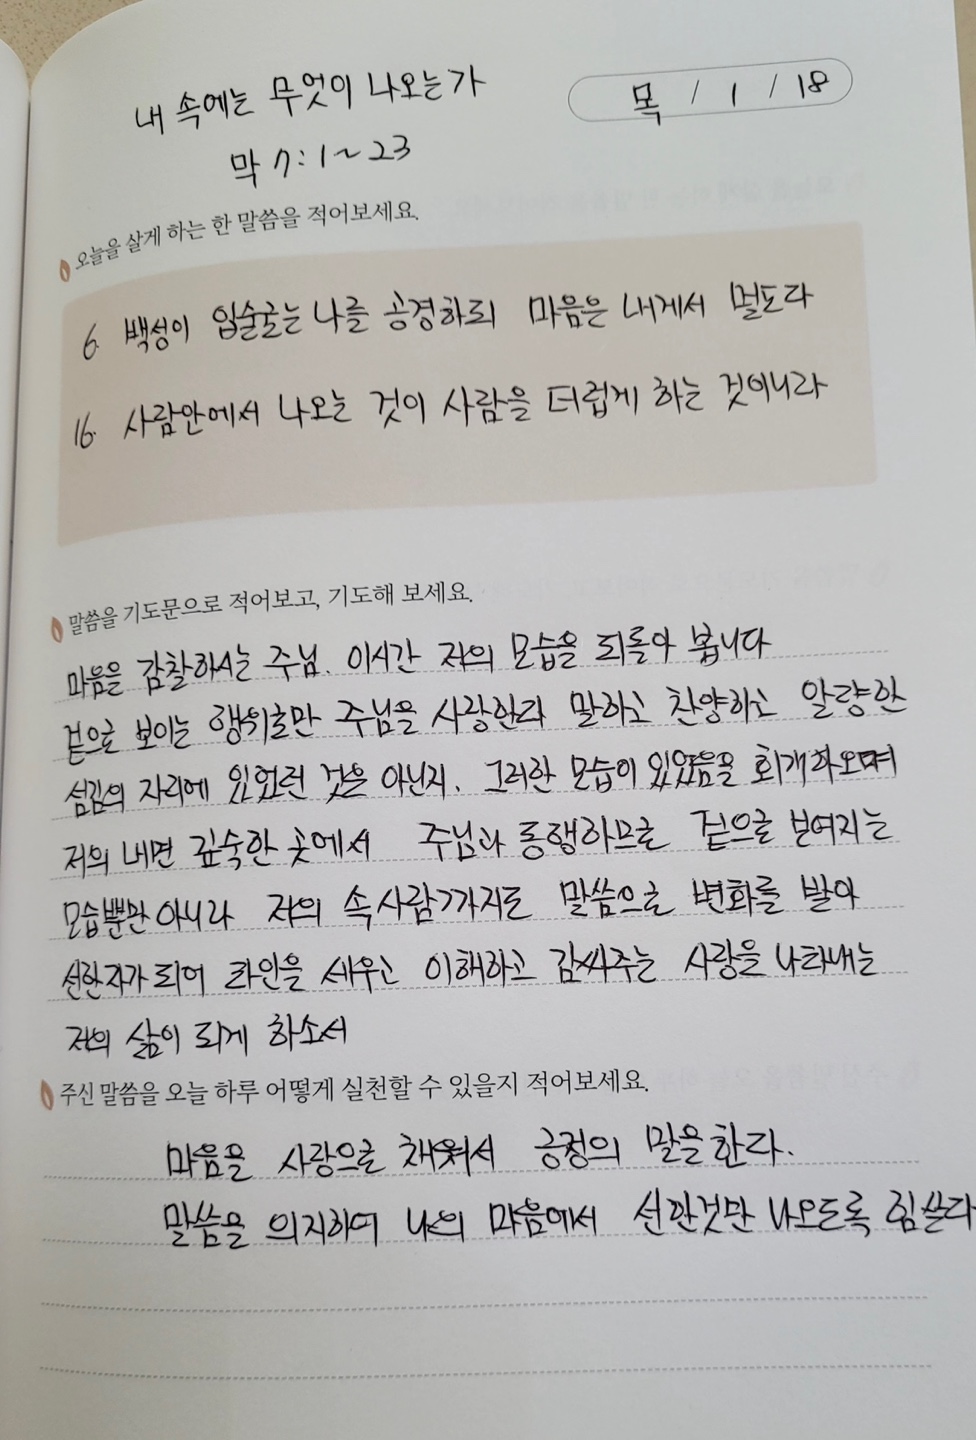 내 속에는 무엇이 나오는가
목 / 1 / 18
막 7:1~23
오늘을 살게 하는 한 말씀을 적어보세요.
6. 백성이 입술로는 나를 공경하되 마음은 내게서 멀도다
16. 사람안에서 나오는 것이 사람을 더럽게 하는 것이니라
말씀을 기도문으로 적어보고, 기도해 보세요.
마음을 감찰하시는 주님. 이시간 저의 모습을 되돌아 봅니다
겉으로 보이는 행위로만 주님을 사랑한다 말하고 찬양하고 알량한
섬김의 자리에 있었던 것은 아닌지. 그러한 모습이 있었음을 회개하오며
저의 내면 깊숙한 곳에서 주님과 동행하므로 겉으로 보여지는
모습뿐만 아니라 저의 속사람까지도 말씀으로 변화를 받아
선한자가 되어 타인을 세우고 이해하고 감싸주는 사랑을 나타내는
저의 삶이 되게 하소서
주신 말씀을 오늘 하루 어떻게 실천할 수 있을지 적어보세요.
마음을 사랑으로 채워서 긍정의 말을 한다.
말씀을 의지하여 나의 마음에서 선한것만 나오도록 힘쓴다